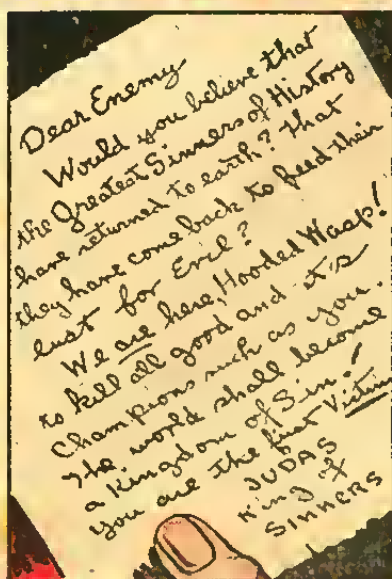 Dear Enemy
Would you believe that
the Greatest Sinners of History
have returned to earth? That
they have come back to feed their
lust for Evil?
We are here, Hooded Wasp!
to kill all good and it's
Champions such as you.
The world shall become
a Kingdom of Sin!
you are the first Victim
JUDAS
King of
SINNERS